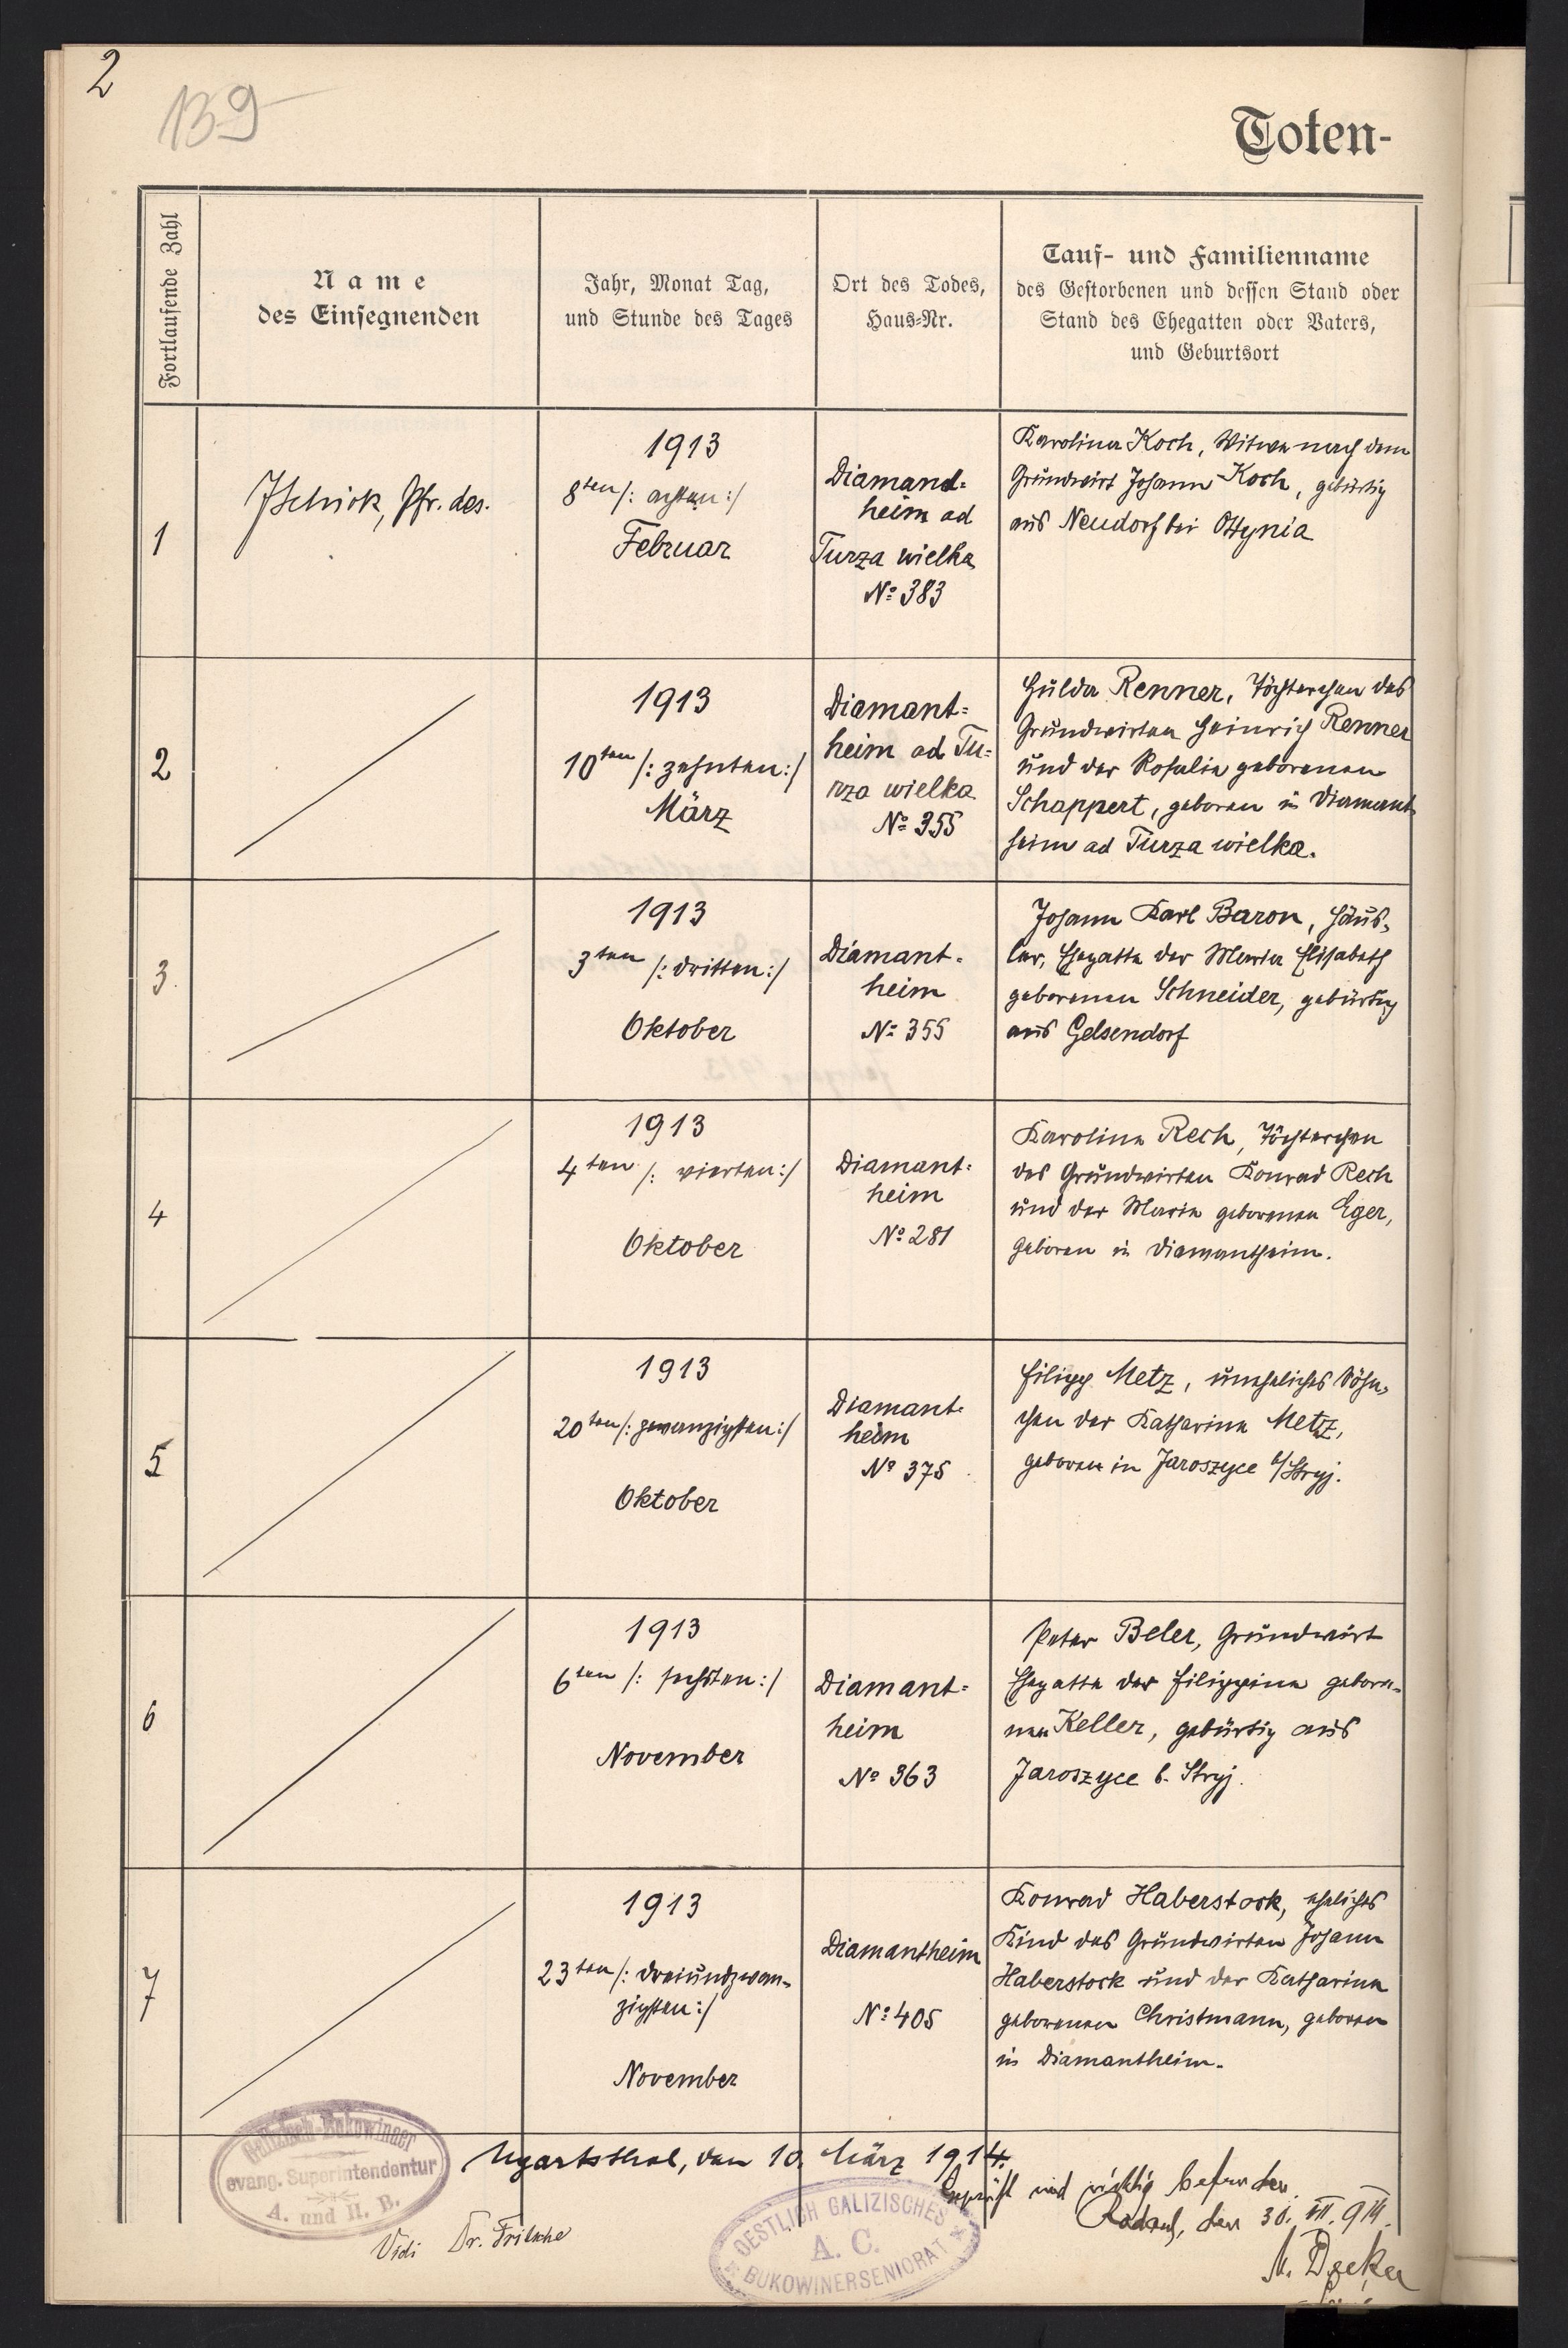 2
139
Toten-
Fortlaufende Zahl
Name
des Einsegnenden
Jahr, Monat Tag,
und Stunde des Tages
Ort des Todes,
Haus-Nr.
Tauf- und Familienname
des Gestorbenen und dessen Stand oder
Stand des Ehegatten oder Vaters,
und Geburtsort
1
JSchick, Pfr. des.
1913
8ten /: achten :/
Februar
Diamand-
heim ad
Turza wielka
No 383
Karolina Koch, Witwe nach dem
Grundwirt Johann Koch, gebürtig
aus Neudorf bei Ottynia
2
1913
10ten /: zehnten :/
März
Diamant-
heim ad Tu-
rza wielka
No 355
Hulda Renner, Töchterchen des
Grundwirten Heinrich Renner
und der Rosalia geborenen
Schappert, geboren in Diamant-
heim ad Turza wielka.
3.
1913
3ten /: dritten :/
Oktober
Diamant-
heim
No 355
Johann Karl Baron, Häus-
ler, Ehegatte der Maria Elisabeth
geborenen Schneider, gebürtig
aus Gelsendorf
4
1913
4ten /: vierten :/
Oktober
Diamant-
heim
No 281
Karolina Rech, Töchterchen
des Grundwirten Konrad Rech
und der Maria geborenen Eger,
geboren in Diamantheim.
5
1913
20ten /: zwanzigsten :/
Oktober
Diamant-
heim
No 375
Filipp Metz, uneheliches Söhn-
chen der Katharina Metz,
geboren in Jaroszyce b/Stryj.
6
1913
6ten /: sechsten :/
November
Diamant-
heim
No 363
Peter Beler, Grundwirt
Ehegatte der Filippina gebore-
nen Keller, gebürtig aus
Jaroszyce b. Stryj.
7
1913
23ten /: dreiundzwan-
zigsten :/
November
Diamantheim
No 405
Konrad Haberstock, eheliches
Kind des Grundwirten Johann
Haberstock und der Katharina
geborenen Christmann, geboren
in Diamantheim.
Ugartsthal, den 10. März 1914.
Geprüft und richtig befunden.
Radautz, den 30. III. 914.
Galizisch-Bukowinaer
evang. Superintendentur
A. und H. B.
Vidi Dr. Fritsche
OESTLICH GALIZISCHES
A. C.
BUKOWINERSENIORAT
M. Decker